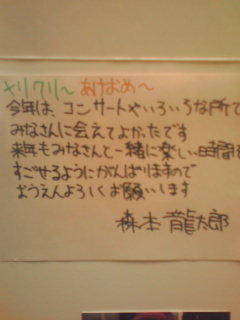 メリクリ〜 あけおめ〜
今年は、コンサートやいろいろな所で
みなさんに会えてよかったです
来年もみなさんと一緒に楽しい時間を
すごせるようにがんばりますので
おうえんよろしくお願いします
森本龍太郎